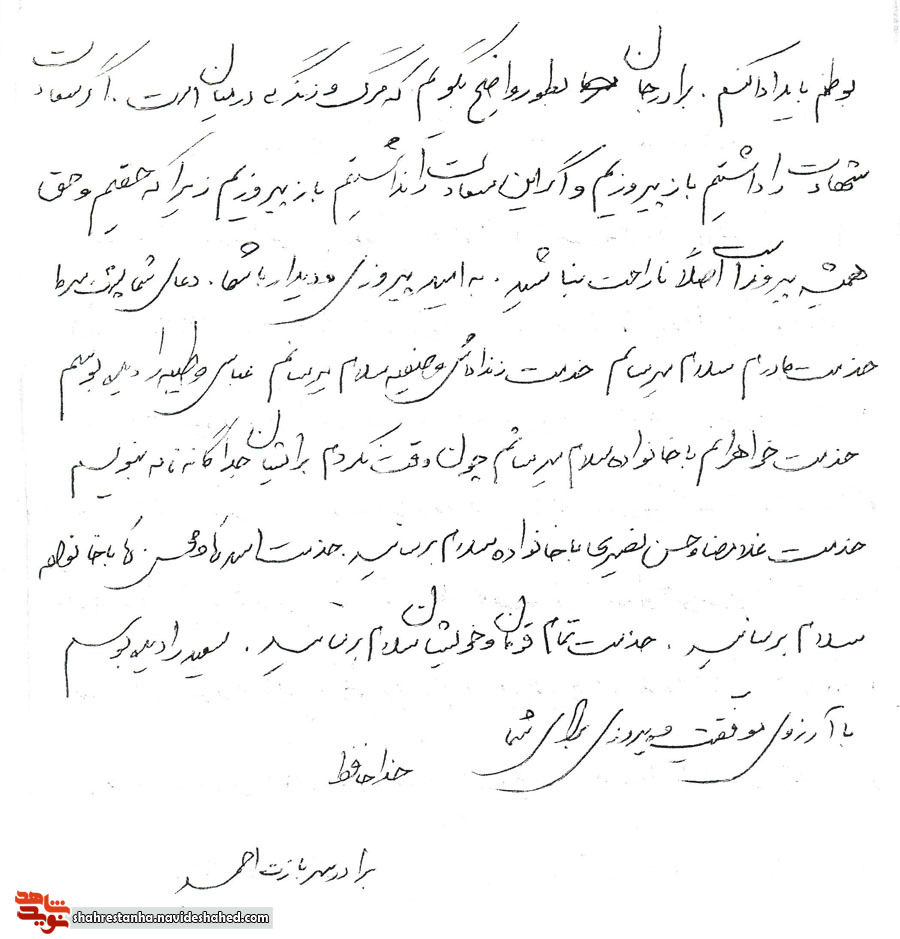 بوطنم باید ادا کنم . برادر جان بطور واضح بگویم که مرگ و زندگی در میان است . اگر سعادت
شهادت را داشتیم باز پیروزیم و اگر این سعادت را نداشتیم باز پیروزیم زیرا که حقیم و حق
همیشه پیروز است اصلاً ناراحت نباشید . به امید پیروزی و دیدار با شما . دعای شما
خدمت مادرم سلام میرسانم خدمت زنداداش و صفیه سلام میرسانم عباس و طیبه را دیده بوسم
خدمت خواهرانم با خانواده سلام میرسانم چون وقت نکردم برایشان جداگانه نامه بنویسم
خدمت غلامرضا و حسن نصیری با خانواده سلام برسانید . خدمت با خانواده
سلام برسانید . خدمت تمام قومان و خویشان سلام برسانید . سعید را دیده بوسم
با آرزوی موفقیت و پیروزی برای شما
خداحافظ
برادر سربازت احمد
نوید شاهد
shahrestanha.navideshahed.com